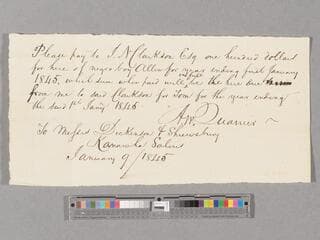 Please pay to J. N. Clarkson Esq one hundred dollars
for hire of negro boy Allen for year ending first January
1846, which sum when paid will be the hire due
in full
from me to said Clarkson for Tom for the year ending
the said 1st Jany 1846
A. W. Quarrier
To Messrs Dickinson & Shrewsbury
Kanawha Salines
January 9/1846